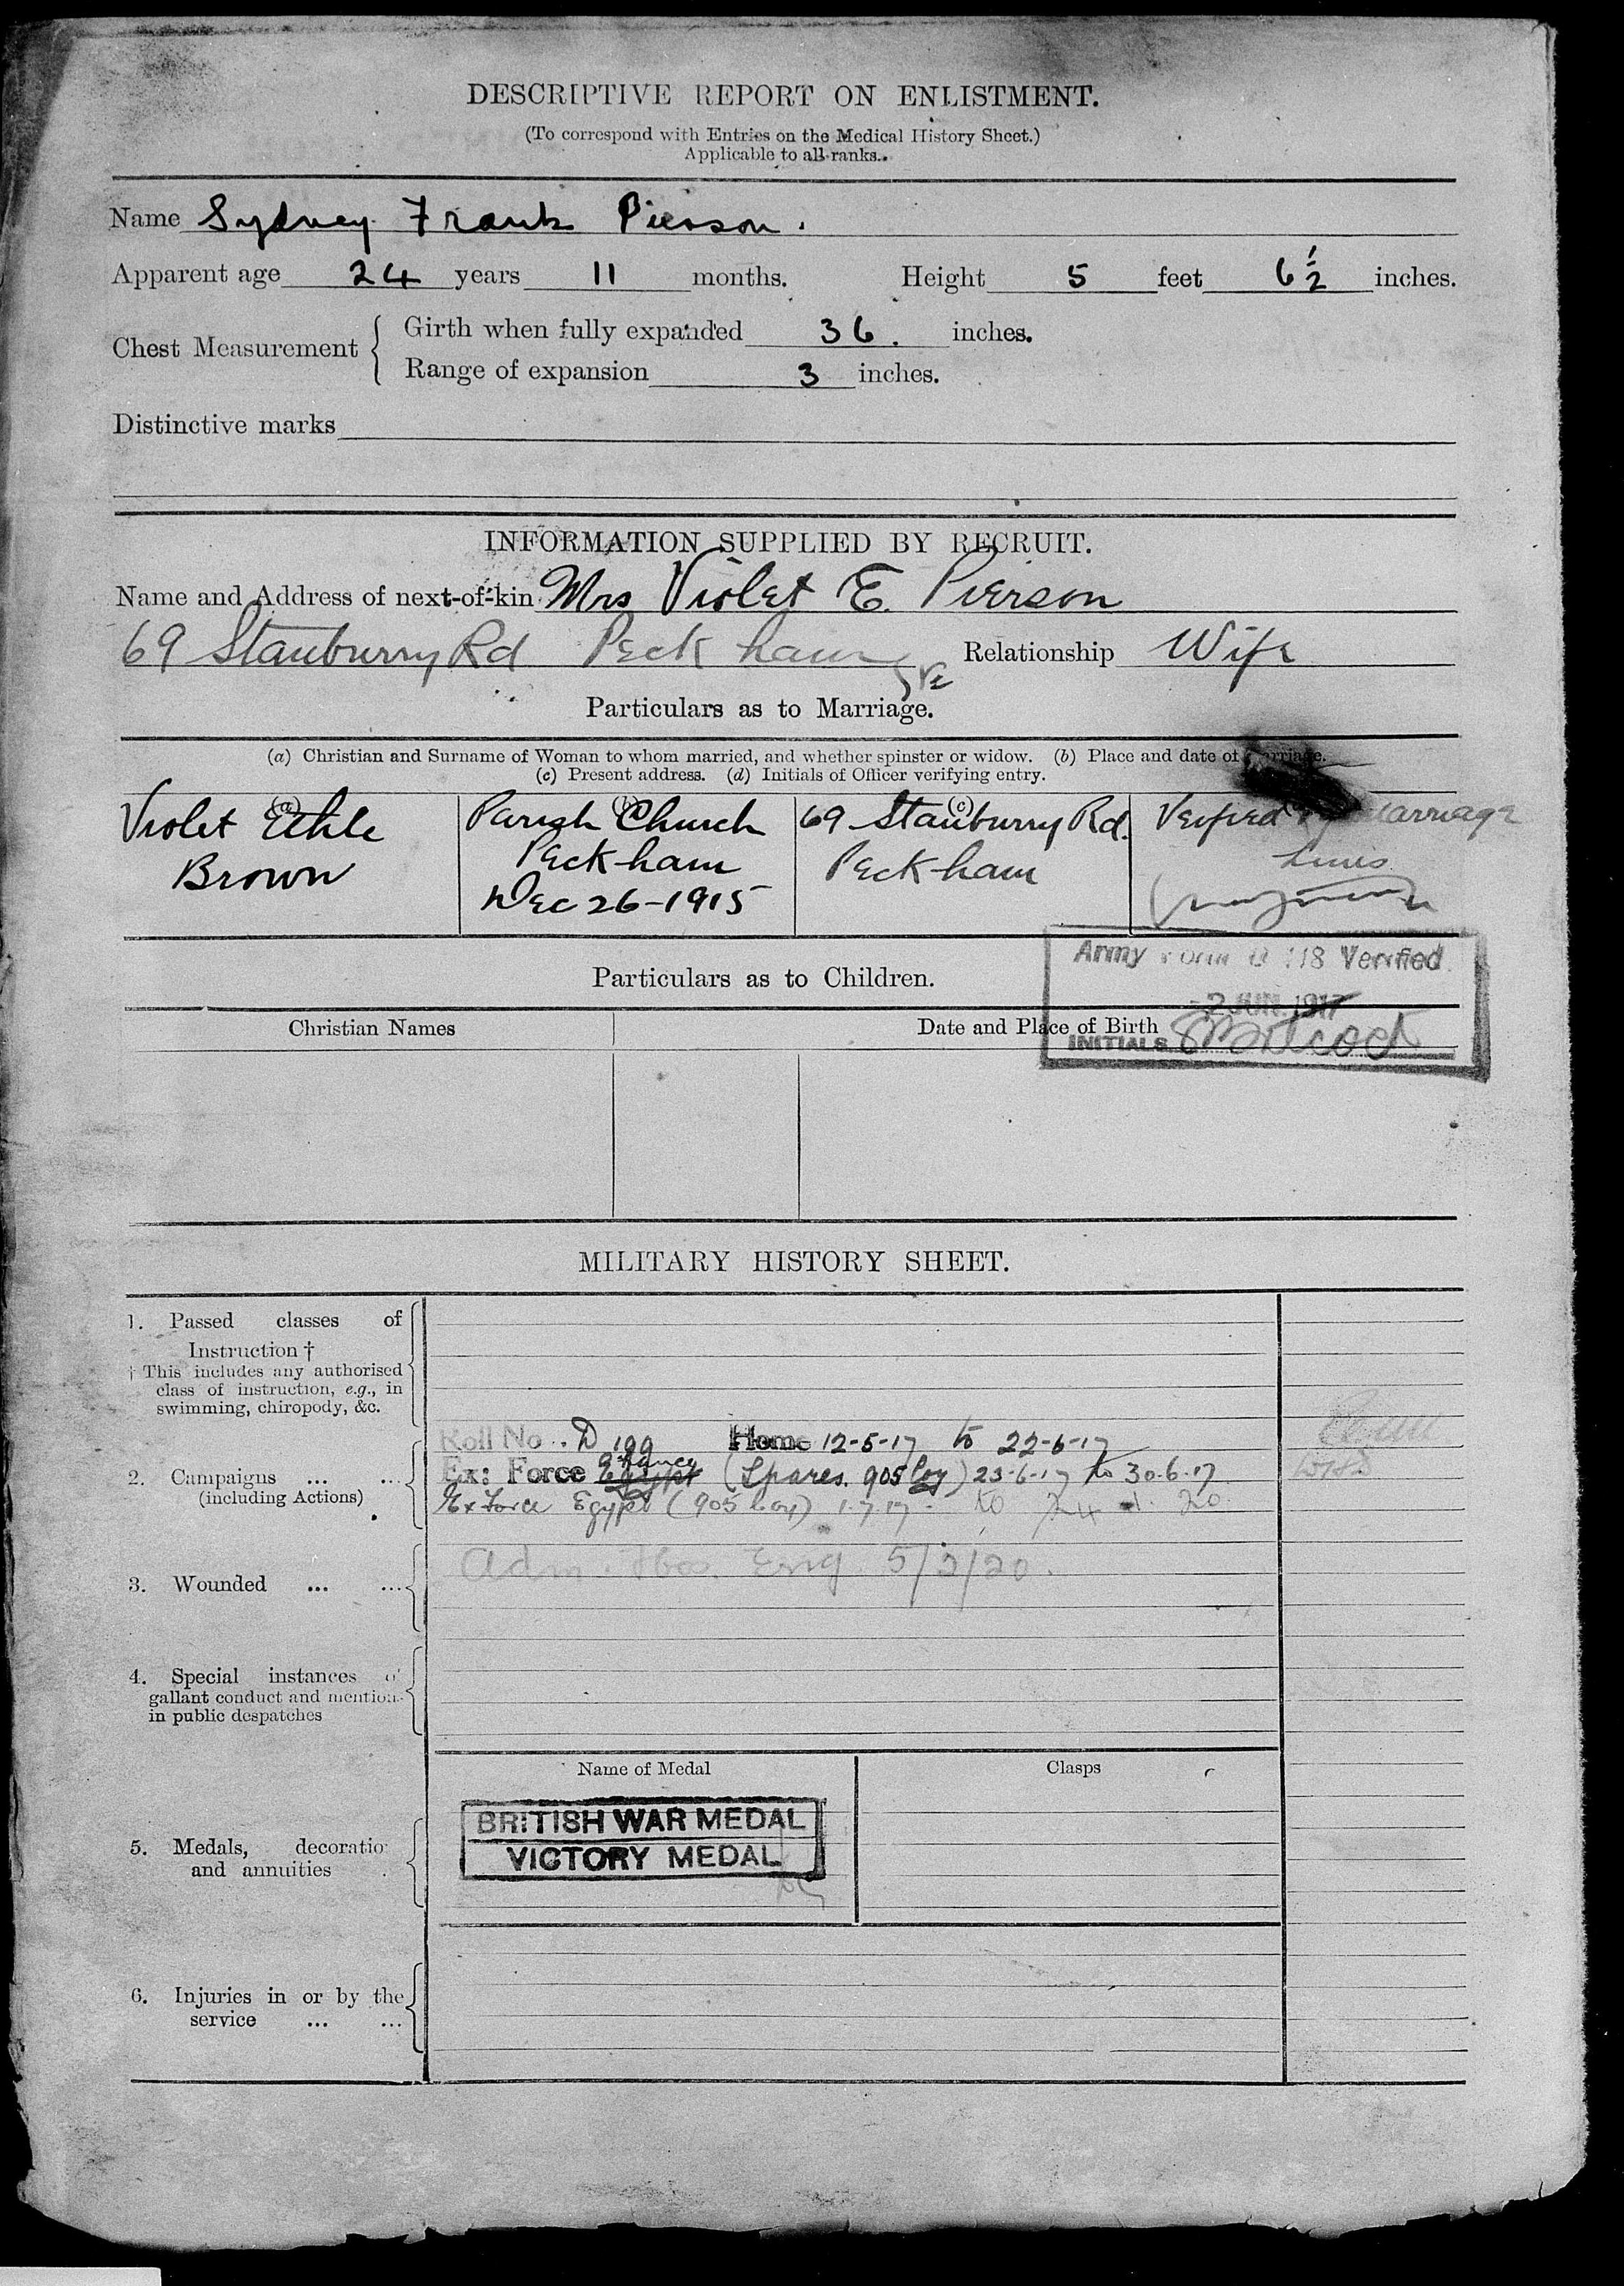 DESCRIPTIVE REPORT ON ENLISTMENT.
(To correspond with Entries on the Medical History Sheet.)
Applicable to all ranks.
Name Sydney Frank Pierson.
Apparent age 24 years 11 months. Height 5 feet 6 1/2 inches.
Chest Measurement { Girth when fully expanded 36. inches.
Range of expansion 3 inches.
Distinctive marks
INFORMATION SUPPLIED BY RECRUIT.
Name and Address of next-of-kin Mrs Violet E. Pierson
69 Stanburry Rd Peckham Relationship Wife
Particulars as to Marriage.
(a) Christian and Surname of Woman to whom married, and whether spinster or widow. (b) Place and date of marriage.
(c) Present address. (d) Initials of Officer verifying entry.
(a) (b) (c)
Violet Ethle Parish Church 69 Stanburry Rd. Verified marriage
Brown Peckham Peckham lines
Dec 26-1915
Army Form B 118 Verified
Particulars as to Children.
-2 JUN. 1917
Christian Names Date and Place of Birth
INITIALS
MILITARY HISTORY SHEET.
1. Passed classes of
Instruction †
† This includes any authorised
class of instruction, e.g., in
swimming, chiropody, &c.
Roll No. D 199 Home 12-5-17 to 22-6-17
France
2. Campaigns ... ... Ex: Force Egypt (Spares. 905 Coy) 23-6-17 to 30.6.17
(including Actions) Ex Force Egypt (905 Coy) 1.7.17. to 24 1. 20
3. Wounded ... ... Adm. Hos. Eng 5/2/20.
4. Special instances of
gallant conduct and mention
in public despatches
Name of Medal Clasps
BRITISH WAR MEDAL
VICTORY MEDAL
5. Medals, decoratio
and annuities
6. Injuries in or by the
service ... ...